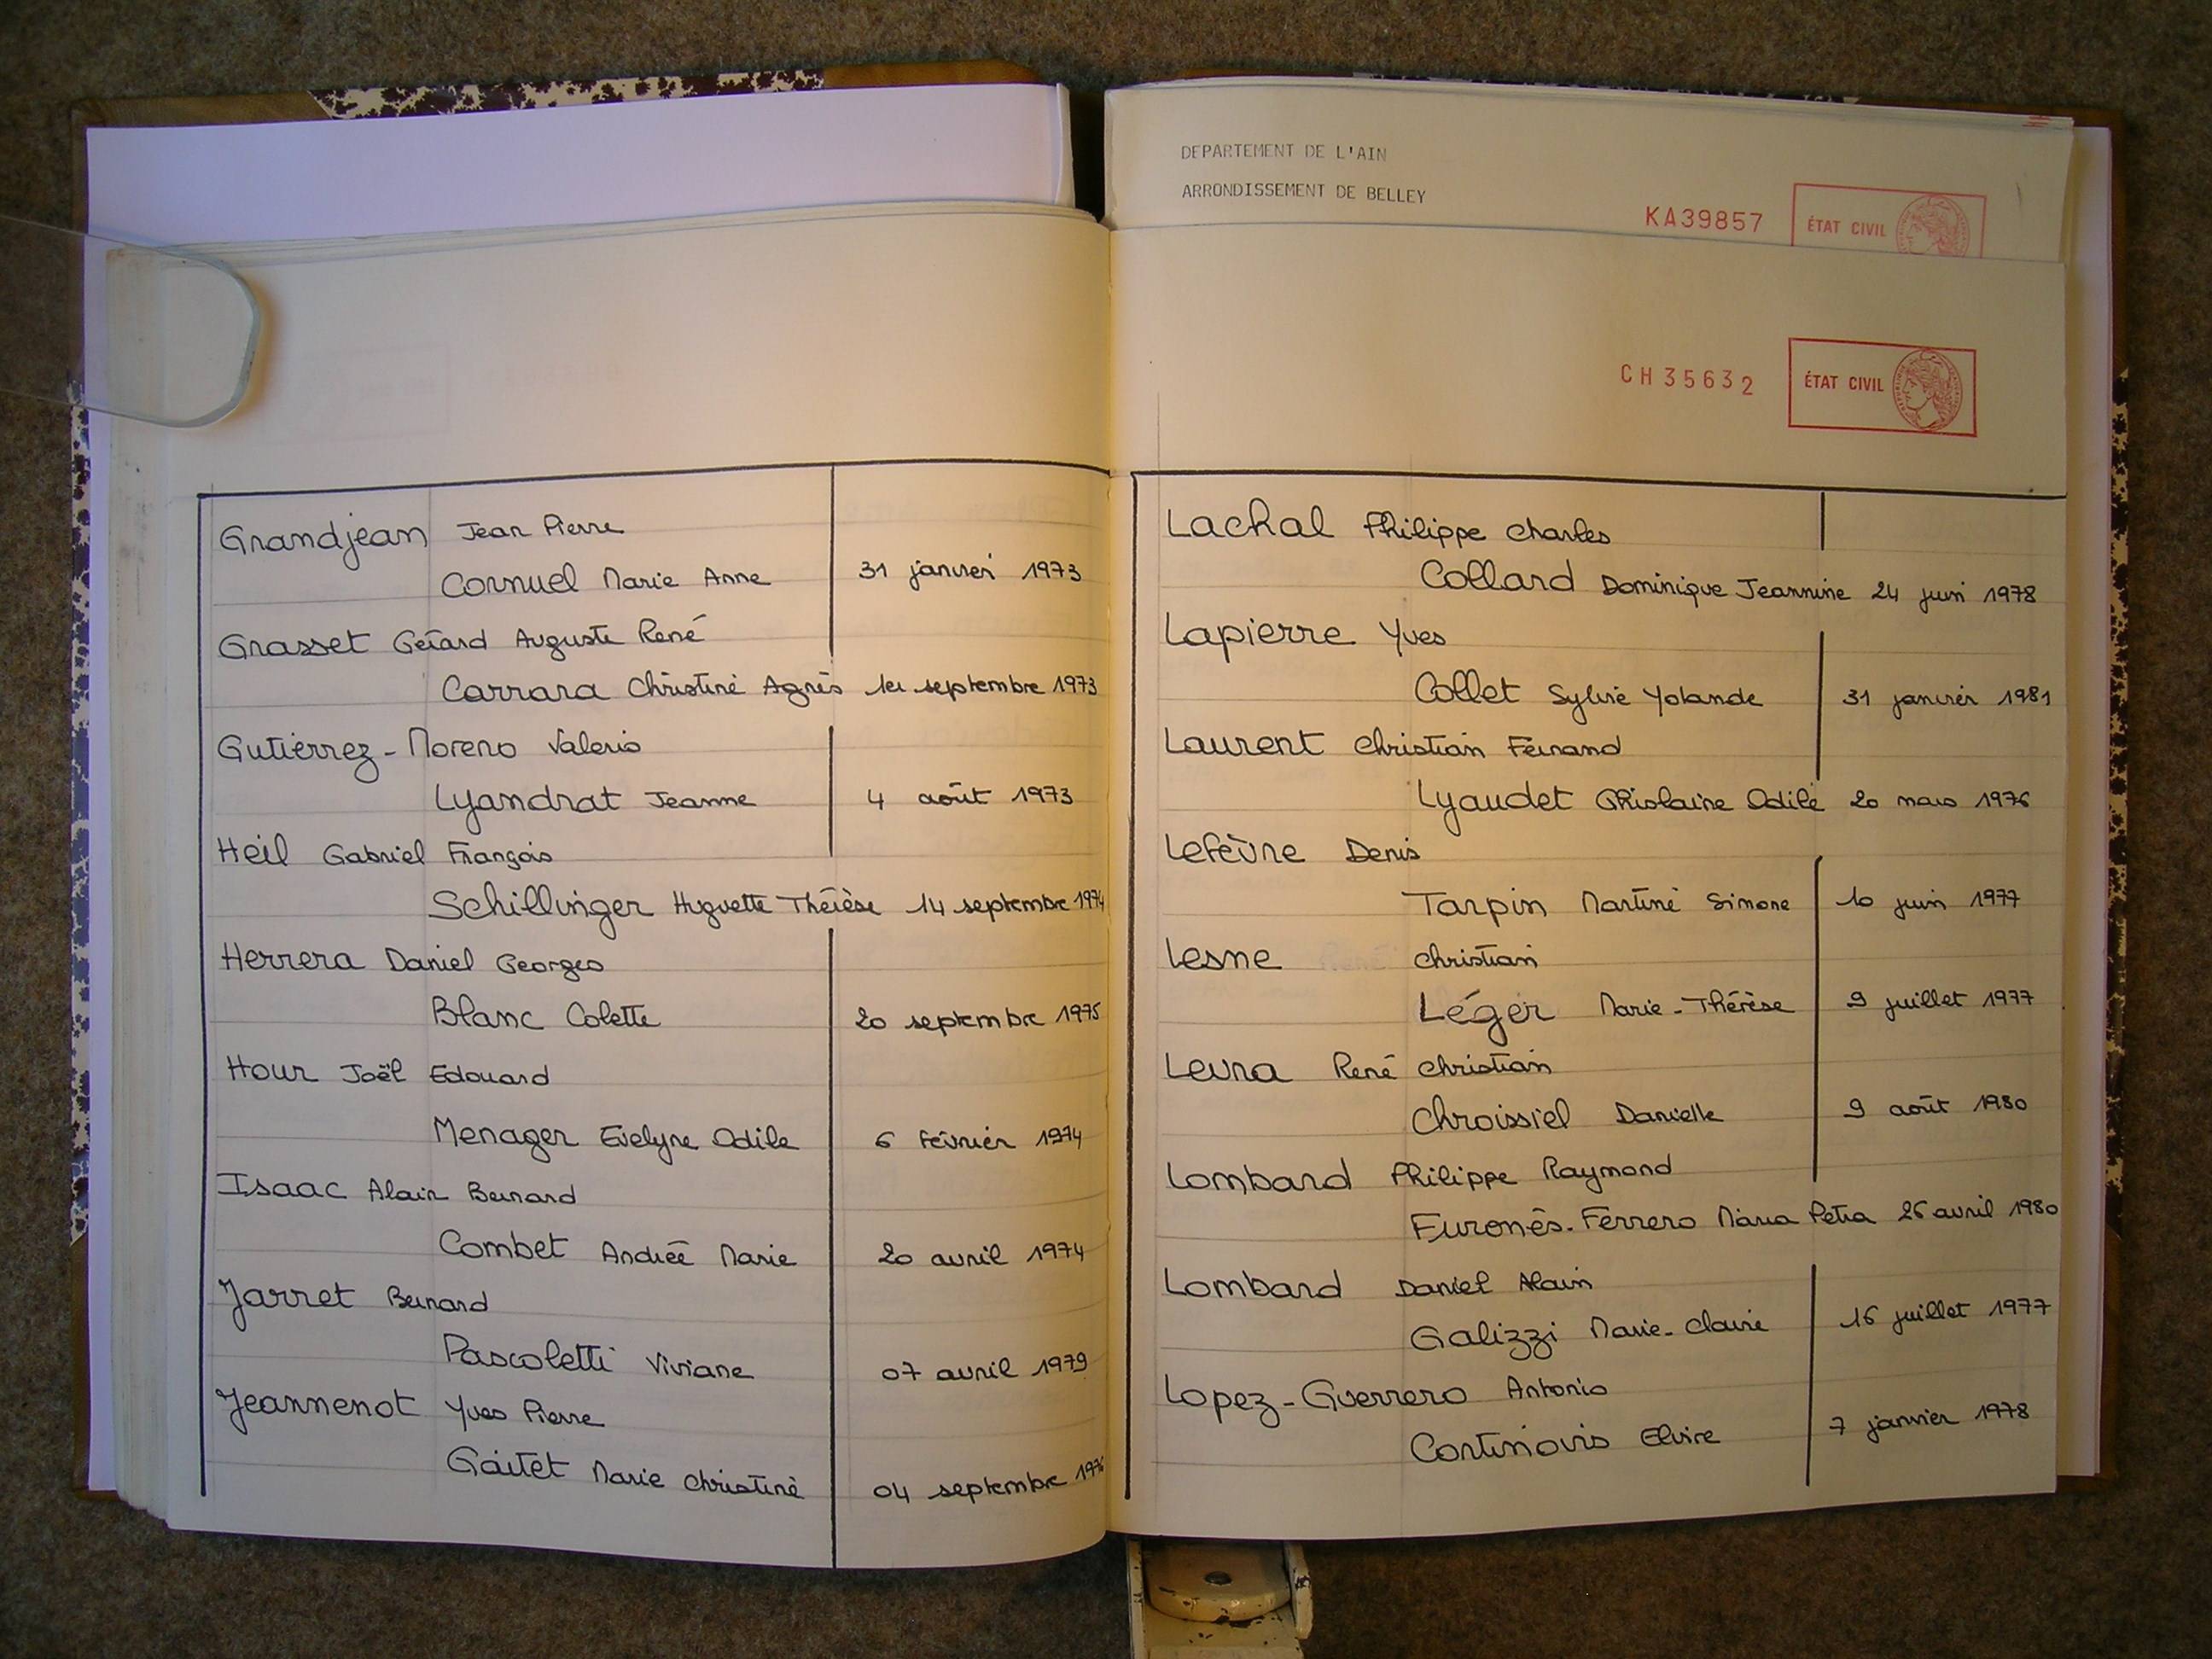 Grandjean Jean Pierre
Cornuel Marie Anne 31 janvier 1973
Grasset Gérard Auguste René
Carrara Christine Agnès 1er septembre 1973
Gutierrez-Moreno Valerio
Lyandrat Jeanne 4 août 1973
Heil Gabriel François
Schillinger Huguette Thérèse 14 septembre 1974
Herrera Daniel Georges
Blanc Colette 20 septembre 1975
Hour Joël Edouard
Menager Evelyne Odile 6 février 1974
Isaac Alain Bernard
Combet Andrée Marie 20 avril 1974
Jarret Bernard
Pascoletti Viviane 07 avril 1979
Jeannenot Yves Pierre
Gaitet Marie Christine 04 septembre
DEPARTEMENT DE L'AIN
ARRONDISSEMENT DE BELLEY
KA39857 ÉTAT CIVIL
CH35632 ÉTAT CIVIL
Lachal Philippe Charles
Collard Dominique Jeannine 24 juin 1978
Lapierre Yves
Collet Sylvie Yolande 31 janvier 1981
Laurent Christian Fernand
Lyaudet Ghislaine Odile 20 mars 1976
Lefèvre Denis
Tarpin Martine Simone 10 juin 1977
Lesne Christian
Léger Marie-Thérèse 9 juillet 1977
Levra René Christian
Chroissiel Danielle 9 août 1980
Lombard Philippe Raymond
Euronès-Ferrero Maria Petra 26 avril 1980
Lombard Daniel Alain
Galizzi Marie-Claire 16 juillet 1977
Lopez-Guerrero Antonio
Continovis Elvire 7 janvier 1978